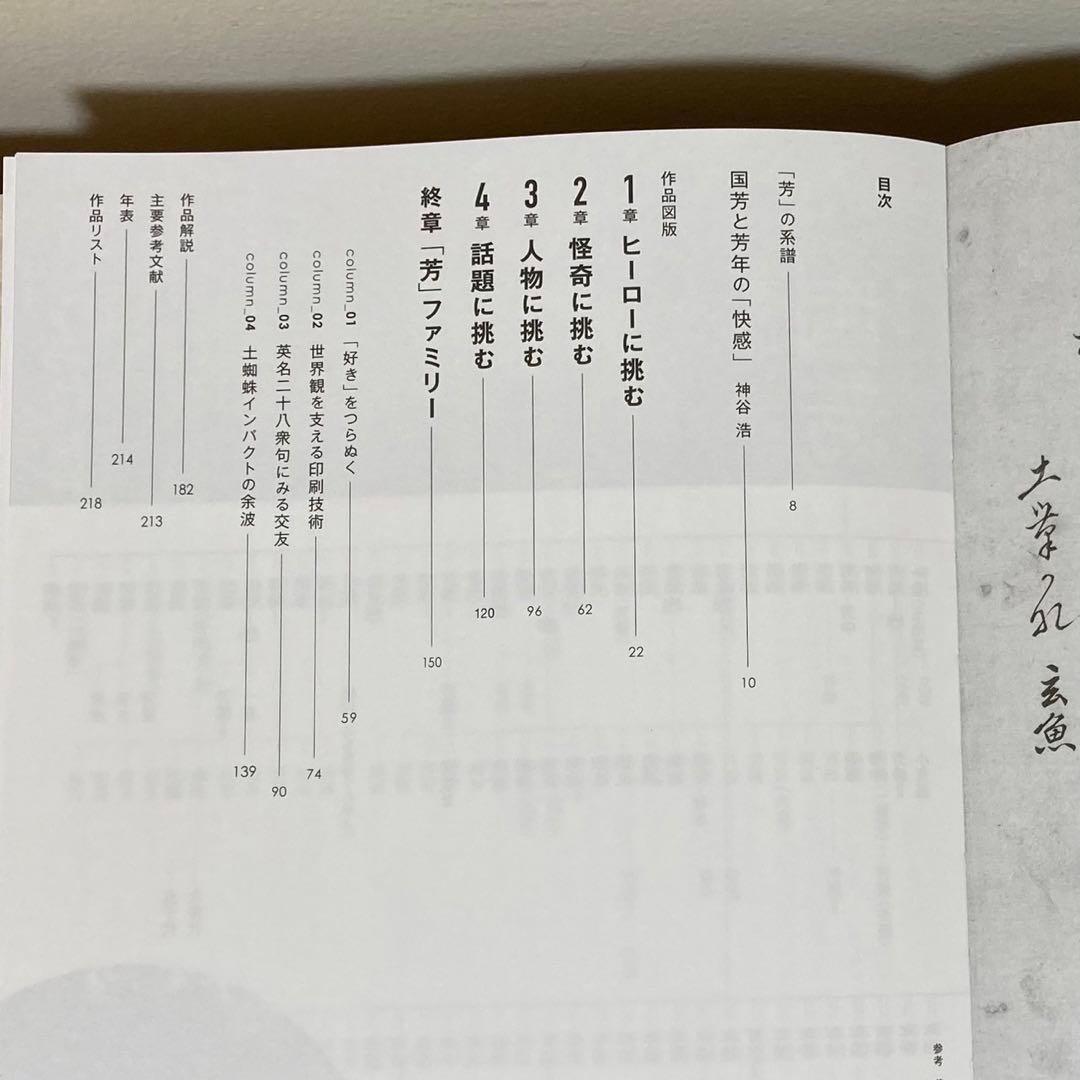 目次
「芳」の系譜 8
国芳と芳年の「快感」 神谷 浩 10
作品図版
1章 ヒーローに挑む 22
2章 怪奇に挑む 62
3章 人物に挑む 96
4章 話題に挑む 120
終章 「芳」ファミリー 150
column_01 「好き」をつらぬく 59
column_02 世界観を支える印刷技術 74
column_03 英名二十八衆句にみる交友 90
column_04 土蜘蛛インパクトの余波 139
作品解説 182
主要参考文献 213
年表 214
作品リスト 218
参考
玄魚